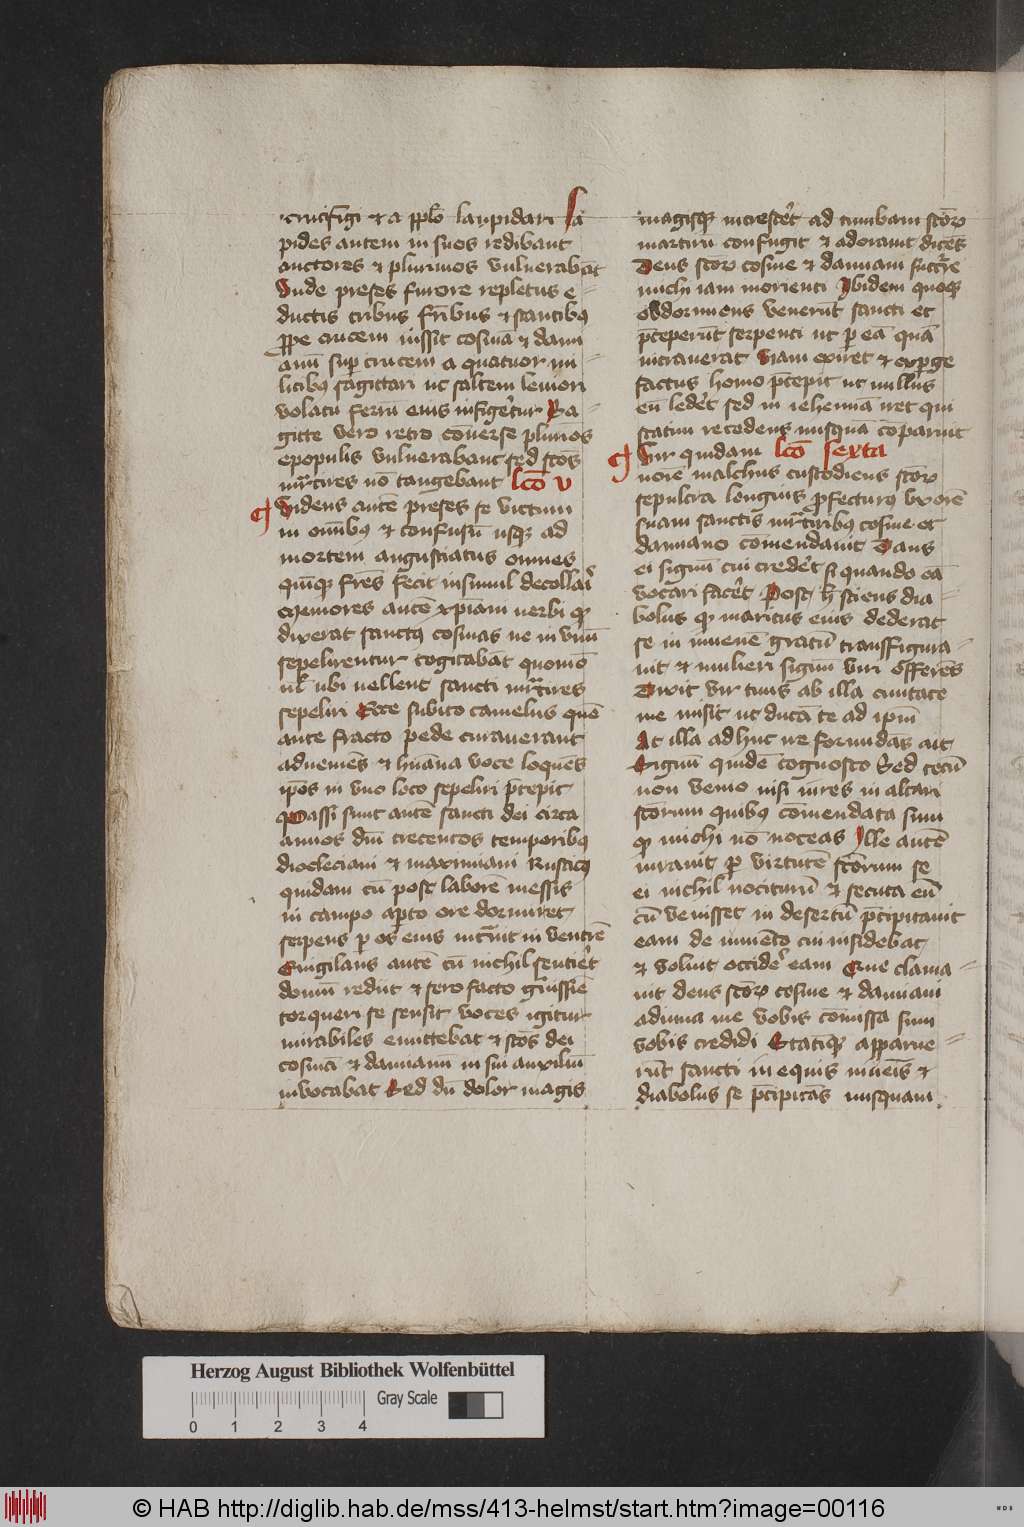 crucifigi et a pplo lanpidari La
pides autem in suos redibant
auctores et plurimos vulnerabāt
Unde preses furore repletus e=
ductis tribus fr̄ibus et stantibꝰ
ꝓpe crucem iussit cosmā et dami
anū suꝑ crucem a quatuor mi=
litibꝰ sagittari ut saltem leuiori
volatu ferrū eius infigeretur Sa=
gitte vero retro conuerse plurīos
epopulis vulnerabant sed scōs
mr̄tires nō tangebant lcō v
Videns autē preses se victum
in omībꝰ et confusū usqꝫ ad
mortem angustiatus omnes
quīqꝫ frēs fecit insimul decollari
Memores autē xp̄iani uerbi qꝫ
dixerat sanctꝰ cosmas ne in vnū
sepelirentur cogitabāt quomō
ul̄ ubi uellent sancti mr̄tires
sepeliri Ecce subito camelus quē
ante fracto pede curauerant
adueniēs et huāna voce loquēs
ip̄os in vno loco sepeliri p̄cepit
Passi sunt autē sancti dei circa
annos dn̄i trecentos temporibꝰ
diocleciani et maximiani Rusticꝰ
quidam cū post laborē messis
in campo aꝑto ore dormiret
serpens ꝑ os eius intrāuit in ventrē
Euigilans autē cū nichil sentiret
domū rediit et sero facto grauissie
torqueri se sensit voces igitur
mirabiles emittebat et scōs dei
cosmā et damianū in sui auxiliū
inuocabat Sed dū dolor magis
magisqꝫ incresceret ad tumbam scōrꝝ
martirū confugit et adorauit dicēs
Deus scōrꝝ cosme et damiani succurre
michi iam morienti Ibidem quoqꝫ
obdormiens venerūt sancti et
p̄ceperūt serpenti ut ꝑ eā quā
intrauerat viam exiret et exꝑge
factus homo p̄cepit ut nullus
eū lederet sed in iehennā iret qui
statim recedens nusquā cōparuit
Vir quidam lcō sexta
noīe malchus custodiens scōrꝝ
sepulcra longius ꝓfecturꝰ vxorē
suam sanctis mr̄tiribꝰ cosme et
damiano cōmendauit Dans
ei signū cui crederet si quando eā
vocari faceret Post h̄ sciens dia=
bolus qꝫ maritus eius dederat
se in iuuenē gratū transfigura=
uit et mulieri signū viri offerēs
Dixit vir tuus ab illa ciuitate
me misit ut ducā te ad ip̄m
At illa adhuc ne formidas ait
Signū quidē cognosco Sed tecū
non venio nisi iures in altari
scōrum quibꝰ cōmendata sum
qꝫ michi nō noceas Ille autē
iurauit ꝑ virtutē scōrum se
ei nichil nociturū et secuta eū
cū venisset in desertū p̄cipitauit
eam de iumēto cui insidebat
et voluit occidere eam Que clama=
uit deus scōrꝝ cosme et damiani
adiuua me vobis cōmissa sum
vobis credidi Statimqꝫ apparue=
rūt sancti in equis niueis et
diabolus se p̄cipitās nusquam
Herzog August Bibliothek Wolfenbüttel
Gray Scale
0 1 2 3 4
© HAB http://diglib.hab.de/mss/413-helmst/start.htm?image=00116